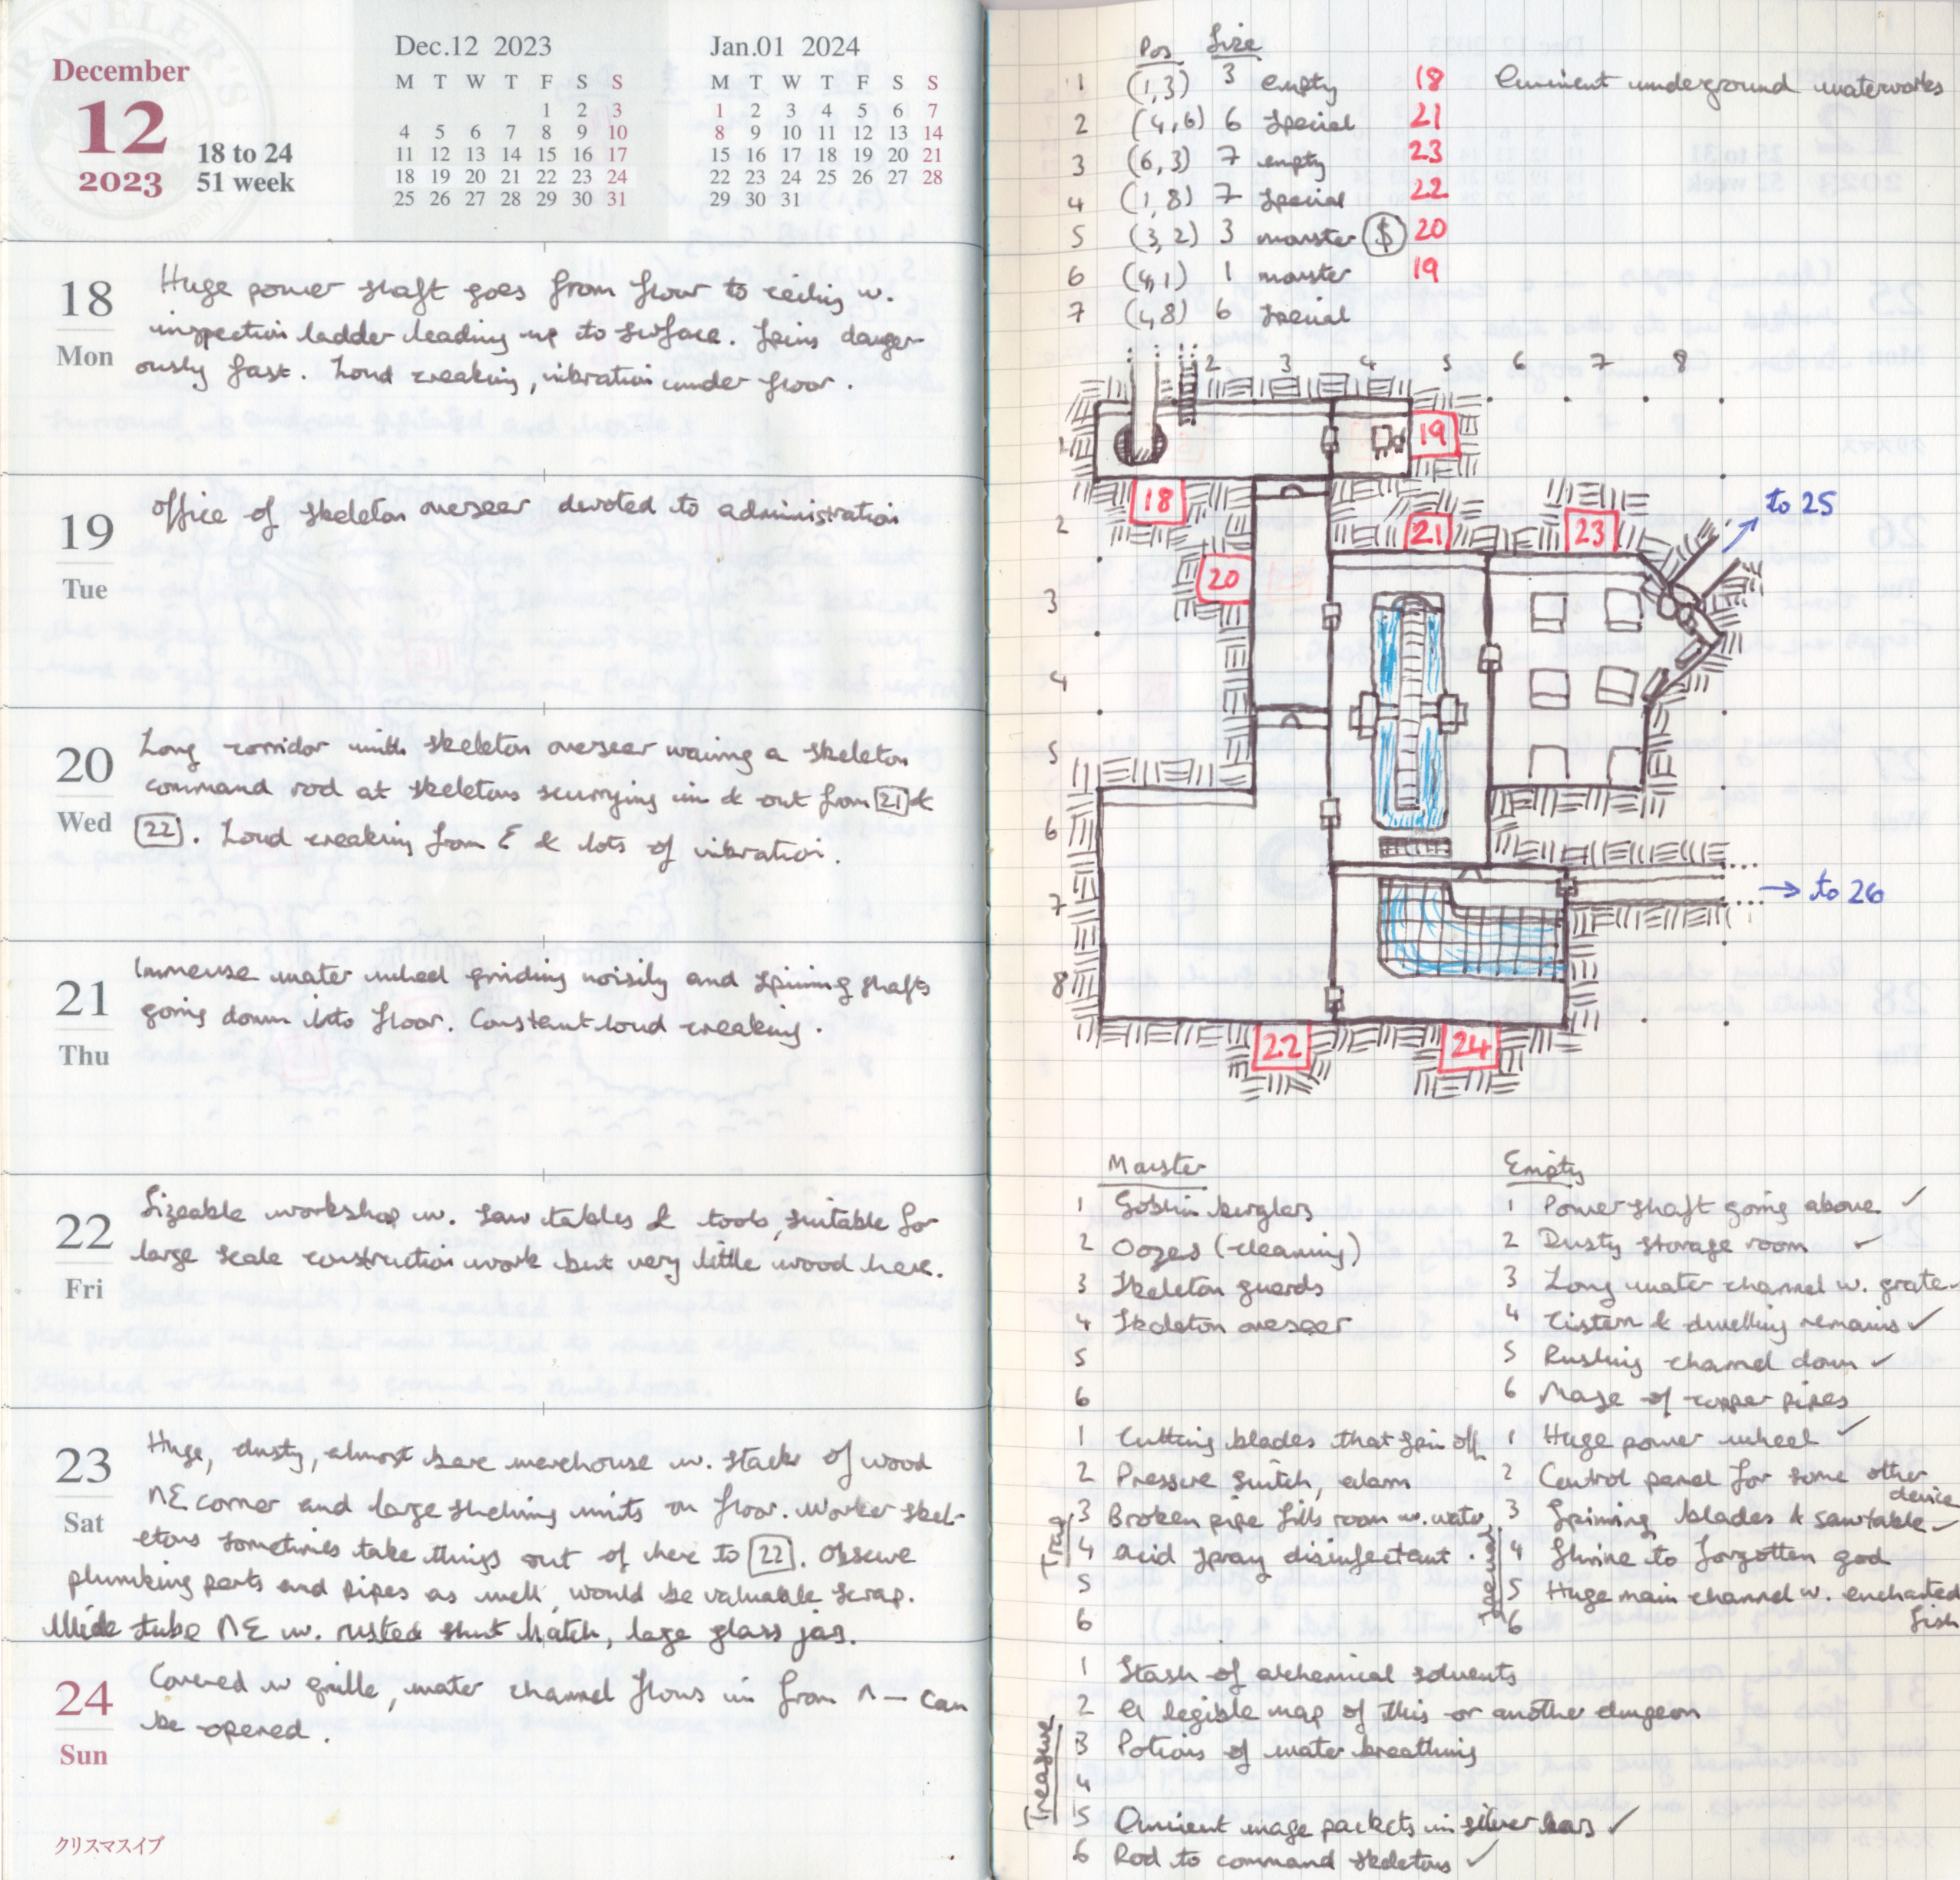 TRAVELER'S
December
12
2023
18 to 24
51 week
Dec.12 2023
M T W T F S S
1 2 3
4 5 6 7 8 9 10
11 12 13 14 15 16 17
18 19 20 21 22 23 24
25 26 27 28 29 30 31
Jan.01 2024
M T W T F S S
1 2 3 4 5 6 7
8 9 10 11 12 13 14
15 16 17 18 19 20 21
22 23 24 25 26 27 28
29 30 31
18
Mon
Huge power shaft goes from floor to ceiling w.
inspection ladder leading up to surface. Spins danger-
ously fast. Loud creaking, vibration under floor.
19
Tue
Office of skeleton overseer devoted to administration
20
Wed
Long corridor with skeleton overseer waving a skeleton
command rod at skeletons scurrying in & out from 21 &
22. Loud creaking from E & lots of vibration.
21
Thu
Immense water wheel grinding noisily and spinning shafts
going down into floor. Constant loud creaking.
22
Fri
Sizeable workshop w. saw tables & tools, suitable for
large scale construction work but very little wood here.
23
Sat
Huge, dusty, almost bare warehouse w. stacks of wood
NE corner and large shelving units on floor. Worker skel-
etons sometimes take things out of here to 22. Obscure
plumbing parts and pipes as well, would be valuable scrap.
Wide tube NE w. rusted shut hatch, large glass jar.
24
Sun
Covered w grille, water channel flows in from N – can
be opened.
クリスマスイブ
Pos Size
1 (1,3) 3 empty 18
2 (4,6) 6 special 21
3 (6,3) 7 empty 23
4 (1,8) 7 special 22
5 (3,2) 3 monster $ 20
6 (4,1) 1 monster 19
7 (4,8) 6 special
underground waterworks
2 3 4 5 6 7 8
1
2
3
4
5
6
7
8
18
19
20
21
22
23
24
to 25
→ to 26
Monster
1 Goblin burglars
2 Oozes (cleaning)
3 Skeleton guards
4 Skeleton overseer
5
6
Trap
1 Cutting blades that spin off
2 Pressure switch, alarm
3 Broken pipe fills room w. water
4 Acid spray disinfectant.
5
6
Empty
1 Power shaft going above ✓
2 Dusty storage room ✓
3 Long water channel w. grate
4 Cistern & dwelling remains ✓
5 Rushing channel down ✓
6 Maze of copper pipes
Special
1 Huge power wheel ✓
2 Control panel for some other device
3 Spinning blades & sawtable ✓
4 Shrine to forgotten god
5 Huge main channel w. enchanted fish
6
Treasure
1 Stash of alchemical solvents
2 A legible map of this or another dungeon
3 Potions of water breathing
4
5 Ancient wage packets in silver bars ✓
6 Rod to command skeletons ✓